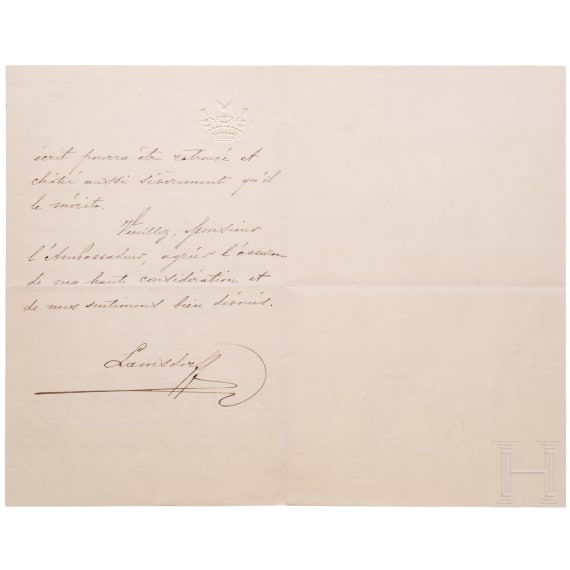 écrit pourra être retrouvé et
châtié aussi sévèrement qu'il
le mérite.
Veuillez, Monsieur
l'Ambassadeur, agréer l'assuran
de ma haute considération et
de mes sentiments bien dévoués.
Lamsdorff
H